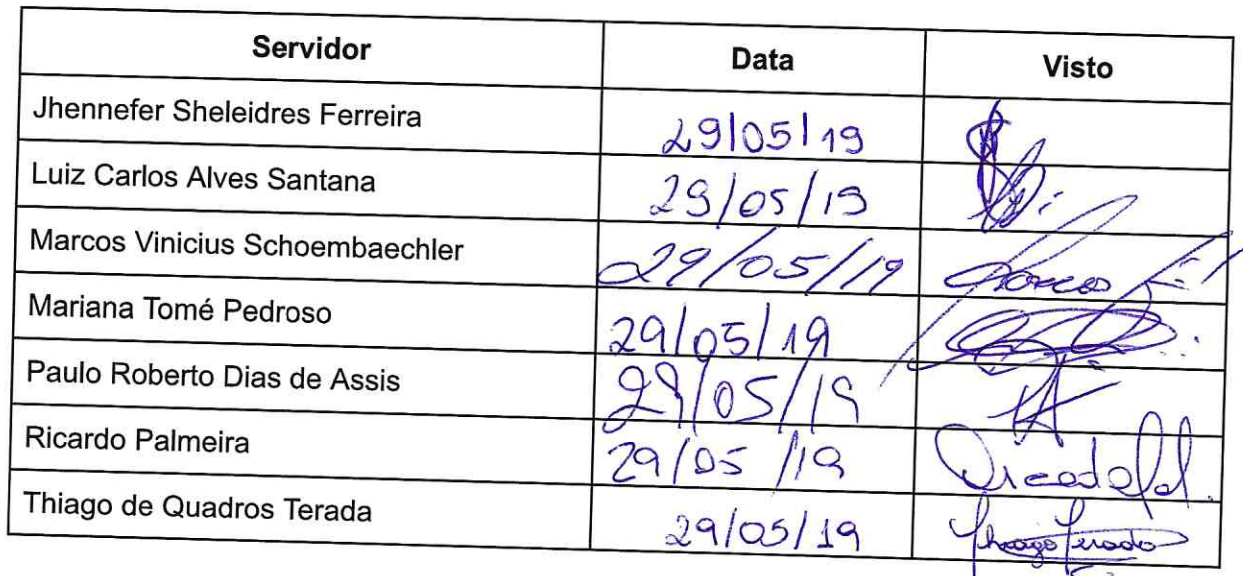 Servidor Data Visto
Jhennefer Sheleidres Ferreira 29/05/19
Luiz Carlos Alves Santana 29/05/19
Marcos Vinicius Schoembaechler 29/05/19
Mariana Tomé Pedroso 29/05/19
Paulo Roberto Dias de Assis 29/05/19
Ricardo Palmeira 29/05/19
Thiago de Quadros Terada 29/05/19 Thiago Terada